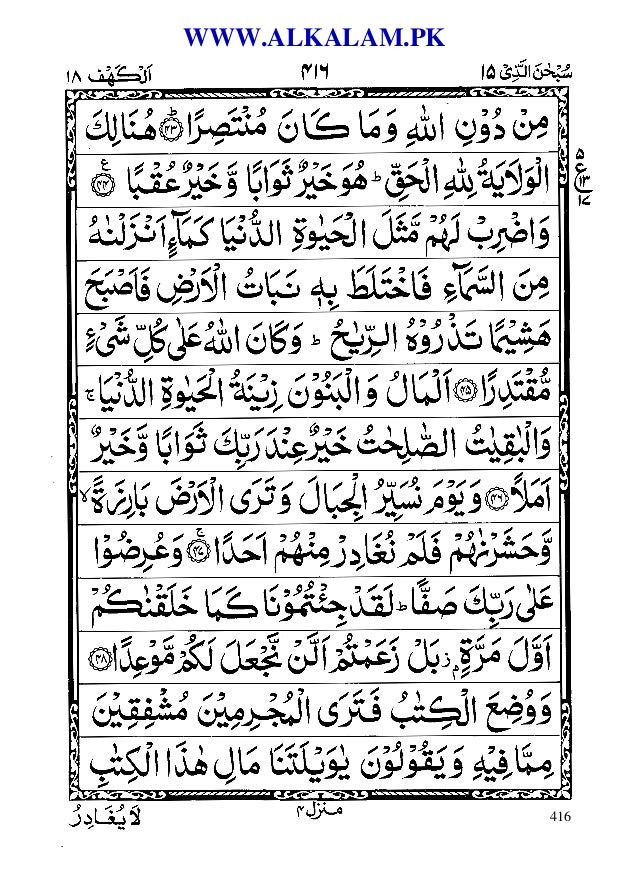 WWW.ALKALAM.PK
سُبْحٰنَ الَّذِیْۤ ۱۵
۴۱۶
اَلْکَهْف ۱۸
مِنْ دُوْنِ اللّٰهِ وَمَا كَانَ مُنْتَصِرًا ؕ﴿۴۳﴾ هُنَالِكَ
الْوَلَايَةُ لِلّٰهِ الْحَقِّ ؕ هُوَ خَيْرٌ ثَوَابًا وَّخَيْرٌ عُقْبًا ﴿۴۴﴾ ع
۵
ع
۱۳
۱۷
وَاضْرِبْ لَهُمْ مَّثَلَ الْحَيٰوةِ الدُّنْيَا كَمَآءٍ اَنْزَلْنٰهُ
مِنَ السَّمَآءِ فَاخْتَلَطَ بِهٖ نَبَاتُ الْاَرْضِ فَاَصْبَحَ
هَشِيْمًا تَذْرُوْهُ الرِّيٰحُ ؕ وَكَانَ اللّٰهُ عَلٰى كُلِّ شَىْءٍ
مُّقْتَدِرًا ﴿۴۵﴾ اَلْمَالُ وَالْبَنُوْنَ زِيْنَةُ الْحَيٰوةِ الدُّنْيَا ۚ
وَالْبٰقِيٰتُ الصّٰلِحٰتُ خَيْرٌ عِنْدَ رَبِّكَ ثَوَابًا وَّخَيْرٌ
اَمَلًا ﴿۴۶﴾ وَيَوْمَ نُسَيِّرُ الْجِبَالَ وَتَرَى الْاَرْضَ بَارِزَةً ۙ
وَّحَشَرْنٰهُمْ فَلَمْ نُغَادِرْ مِنْهُمْ اَحَدًا ۚ﴿۴۷﴾ وَعُرِضُوْا
عَلٰى رَبِّكَ صَفًّا ؕ لَقَدْ جِئْتُمُوْنَا كَمَا خَلَقْنٰكُمْ
اَوَّلَ مَرَّةٍۭ ؗ بَلْ زَعَمْتُمْ اَلَّنْ نَّجْعَلَ لَكُمْ مَّوْعِدًا ﴿۴۸﴾
وَوُضِعَ الْكِتٰبُ فَتَرَى الْمُجْرِمِيْنَ مُشْفِقِيْنَ
مِمَّا فِيْهِ وَيَقُوْلُوْنَ يٰوَيْلَتَنَا مَالِ هٰذَا الْكِتٰبِ
منزل ۴
لَا يُغَادِرُ
416